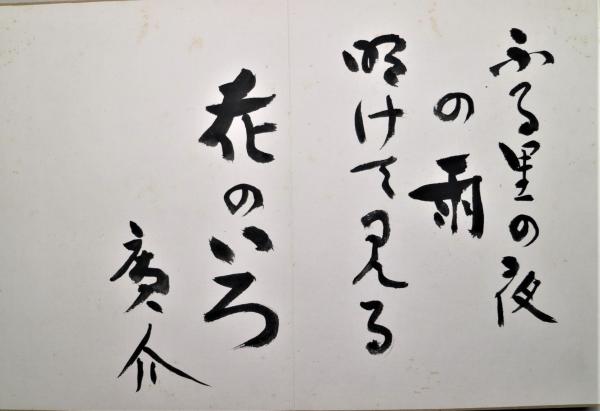 ふる里の夜
の雨
明けて見る
花のいろ
廣介